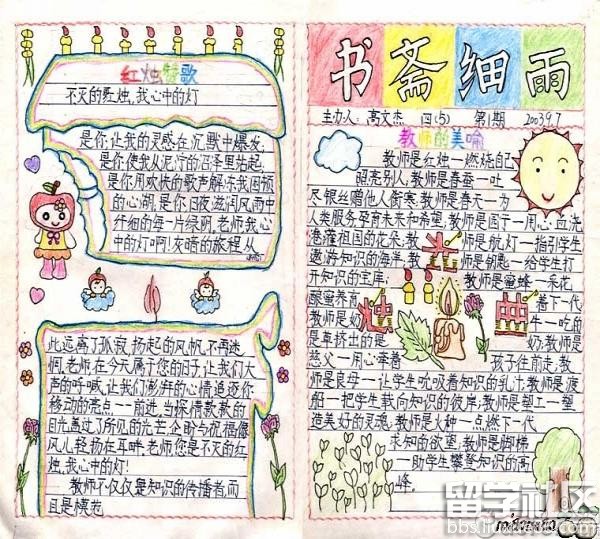 红烛特歌
不灭的红烛,我心中的灯
是你,让我的灵感在沉默中爆发,
是你,使我从泥泞的沼泽里站起,
是你用欢快的歌声解冻我困顿
的心湖,是你日夜滋润风雨中
纤细的每一片绿明,老师,我心
中的灯啊!灰暗的旅程从
此远离了孤寂,扬起的风帆不再迷
惘,老师,在今天属于您的日子,让我们大
声的呼喊,让我们澎湃的心情追逐你
移动的亮点一一前进,当深情款款的
目光盖过了所见的光芒,企盼与祝福像
风儿轻扬在耳畔,老师,您是不灭的红
烛,我心中的灯!
教师不仅仅是知识的传播者,而
且是模范
书斋细雨
主办人:高文杰 四(5) 第1期 2003.9.7
教师的美喻
教师是红烛一燃烧自己
照亮别人;教师是春蚕一吐
尽银丝赠他人御寒;教师是春天一为
人类服务,孕育未来和希望;教师是园丁一用心血浇
灌祖国的花朵;教师是航灯一指引学生
遨游知识的海洋;教师是钥匙一给学生打
开知识的宝库;教师是蜜蜂一采花
酿蜜养育着下一代
教师是奶牛一吃的
是草挤出的是奶;教师是
慈父一用心牵着孩子往前走;教
师是良母一让学生吮吸着知识的乳汁;教师是渡
船一把学生载向知识的彼岸;教师是塑工一塑
造美好的灵魂;教师是火种一点燃下一代
求知的欲望;教师是脚梯
一助学生攀登知识的高
峰。
留学社区